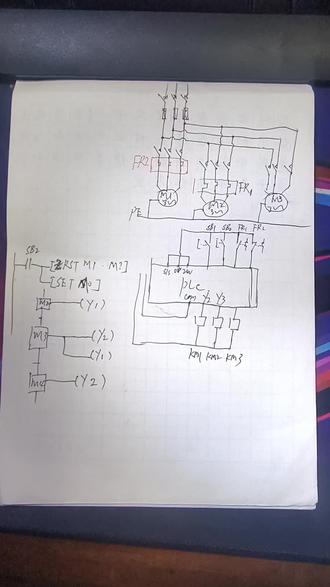 FR2
M1
3~
M2
3~
FR1
M3
3~
PE
SB1 SB2 FR1 FR2
S/S 0V 24V
PLC
COM Y2 Y3
KM1 KM2 KM3
SB2
[ZRST M1 · M?]
[SET M0]
(Y1)
M3
(Y2)
(Y1)
(Y2)